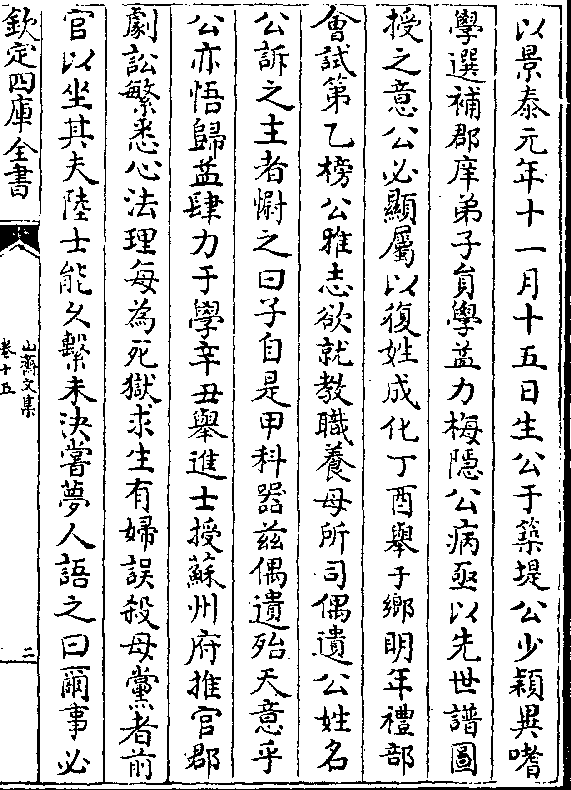 以景泰元年十一月十五日生公于築堤公少穎異嗜
學選補郡庠弟子員學益力梅隱公病亟以先世譜圖
授之意公必顯屬以復姓成化丁酉舉于鄉明年禮部
會試第乙榜公雅志欲就教職養母所司偶遺公姓名
公訴之主者慰之曰子自是甲科器兹偶遺殆天意乎
公亦悟歸益肆力于學辛丑舉進士授蘇州府推官郡
劇訟繁悉心法理每為死獄求生有婦誤殺母黨者前
官以坐其夫陸士能久繫未決嘗夢人語之曰爾事必
欽定四庫全書
山齋文集
卷十五
二